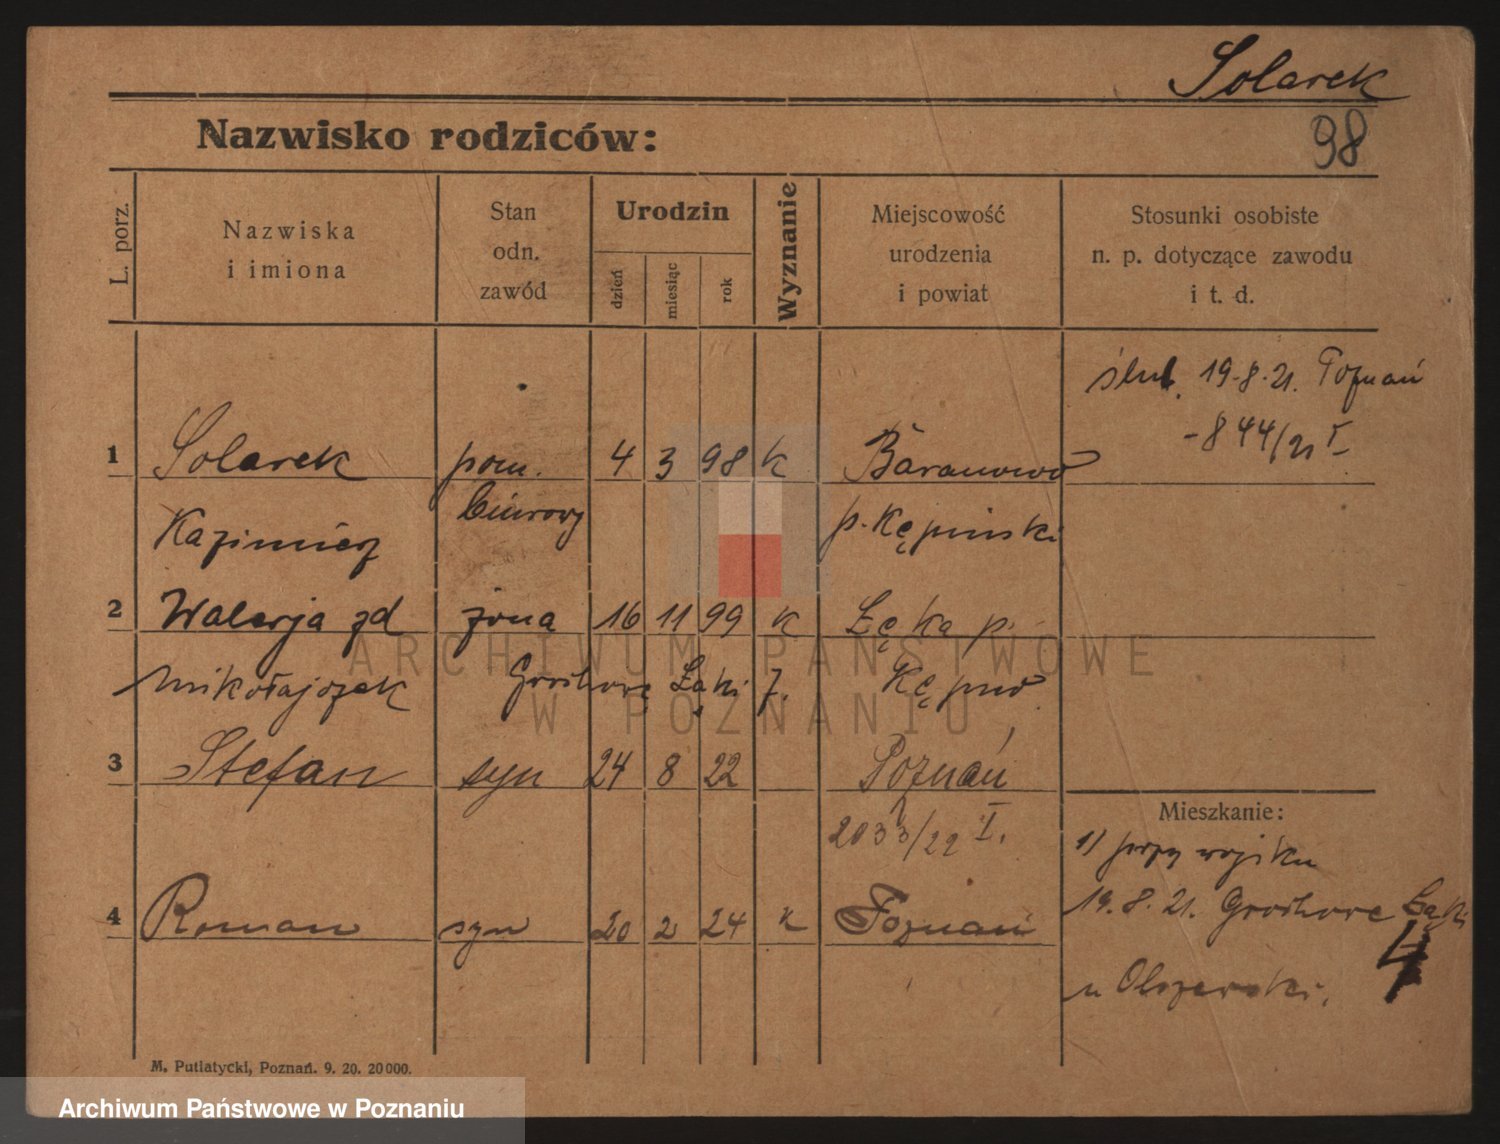 Solarek
98
Nazwisko rodziców:
L. porz.
Nazwiska
i imiona
Stan
odn.
zawód
Urodzin
dzień
miesiąc
rok
Wyznanie
Miejscowość
urodzenia
i powiat
Stosunki osobiste
n. p. dotyczące zawodu
i t. d.
ślub. 19.8.21. Poznań
- 844/21 I
1 Solarek pom. 4 3 98 k Baranowo
Kazimierz biurowy p. Kępiński
2 Walerja zd żona 16 11 99 k Łęka p.
Mikołajczek Grochowe Łąki 7. Kępno
3 Stefan syn 24 8 22 Poznań
2033/22 I.
Mieszkanie:
1) przy wojsku
19.8.21. Grochowe Łąki
4
4 Roman syn 20 2 24 k Poznań
u Olszewski.
M. Putiatycki, Poznań. 9. 20. 20000.
ARCHIWUM PAŃSTWOWE
W POZNANIU
Archiwum Państwowe w Poznaniu